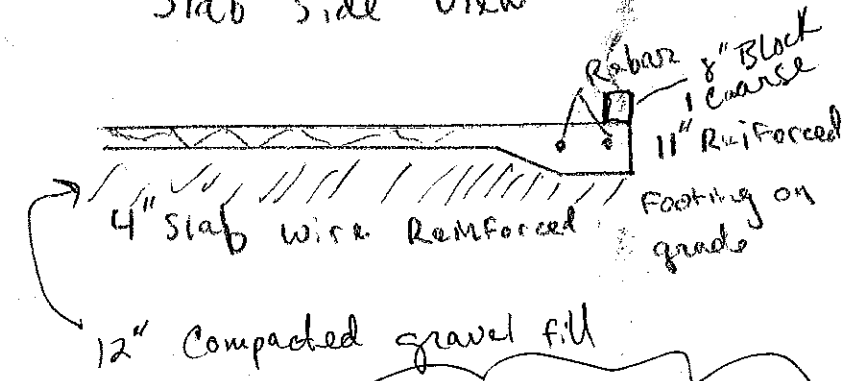 Slab Side View
Rebar
8" Block
1 Coarse
11" Reiforced
Footing on
grade
4" Slab Wire Reinforced
12" Compacted gravel fill